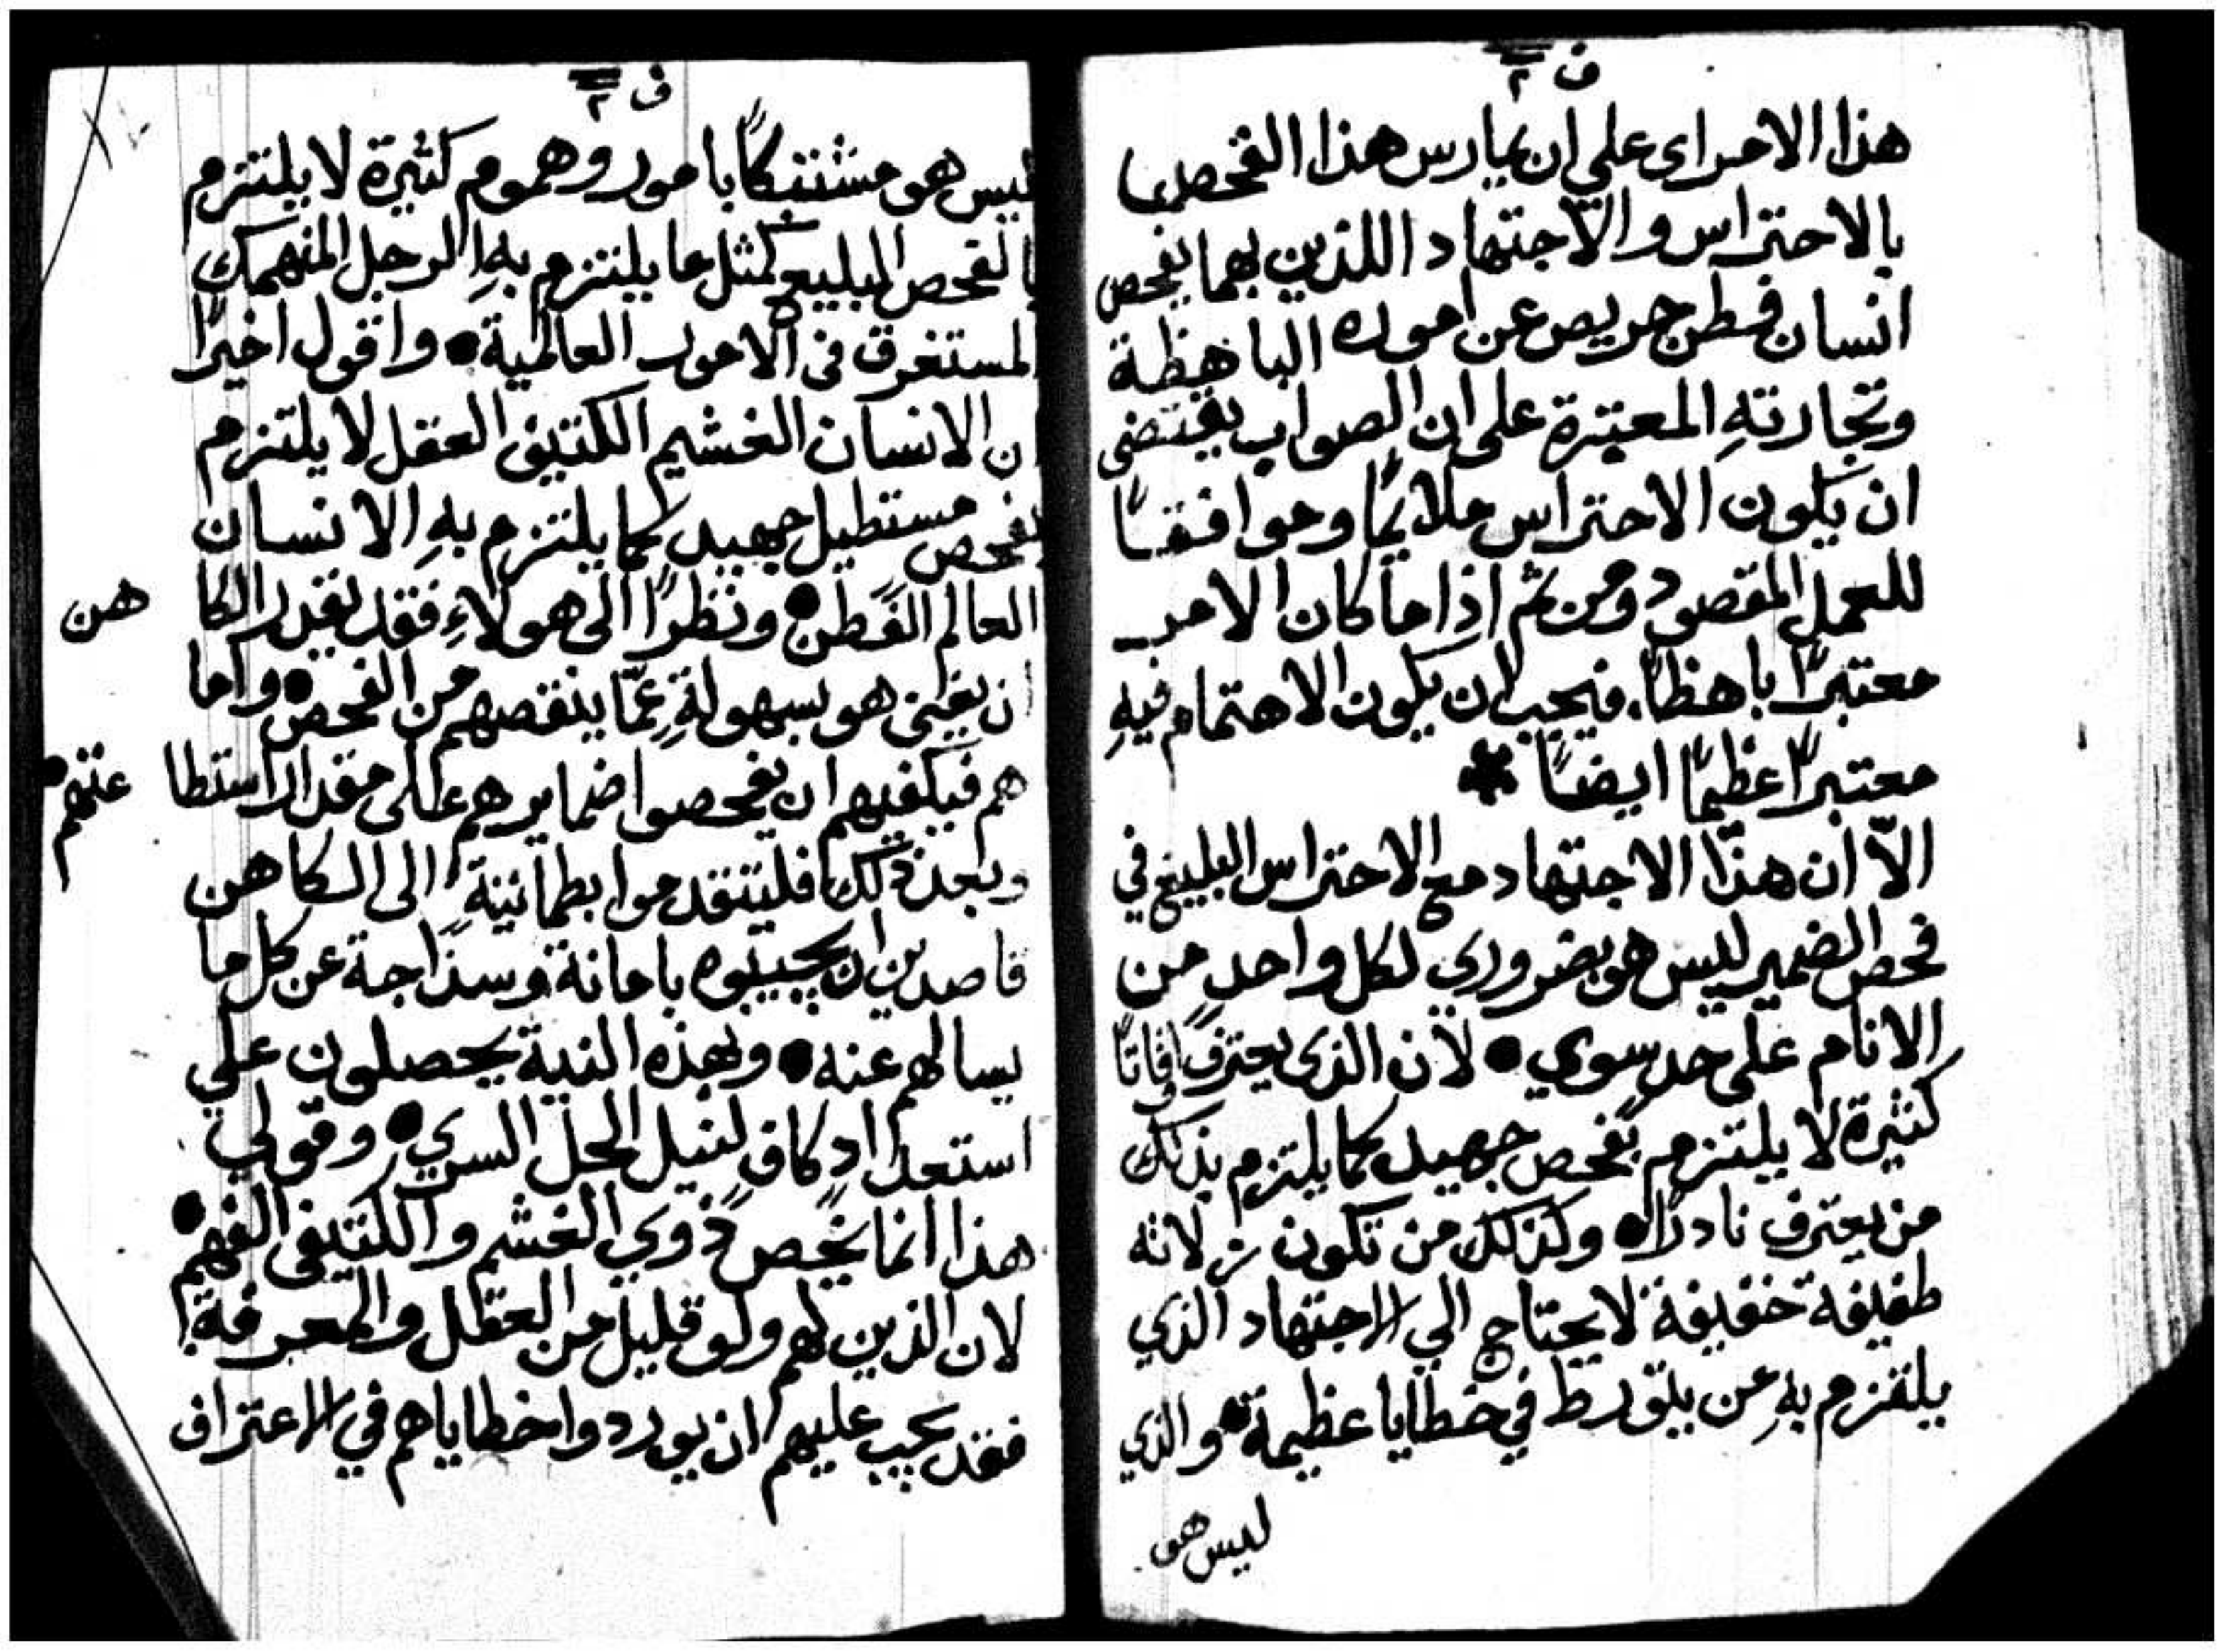 ف ٢
هذا الامر اى على ان يمارس هذا الفحص
بالاحتراس والاجتهاد اللذين بهما يفحص
انسان فطن حريص عن اموره الباهظة
وتجارتهِ المعتبرة على ان الصواب يقتضى
ان يكون الاحتراس ملائمًا وموافقًا
للعمل المقصود ومن ثم اذا ما كان الامر
معتبرًا باهظًا. فيجب ان يكون الاهتمام فيهِ
معتبرًا عظيمًا ايضًا *
الاّ ان هذا الاجتهاد مع الاحتراس البليغ في
فحص الضمير ليس هو بضروري لكل واحدٍ من
الانام على حد سوي • لان الذى يعترف افاتًا
كثيرة لا يلتزم بفحص جهيد كما يلتزم بذلك
من يعترف نادرًا • وكذلك من تكون زلاته
طفيفة خفيفة لا يحتاج الي الاجتهاد الذي
يلتزم بهِ عن يتورط في خطايا عظيمة • والذي
ليس هو
ف ٢
ليس هو مشتبكًا بامور وهموم كثيرة لا يلتزم
بالفحص البليغ كمثل ما يلتزم بهِ الرجل المنهمك
المستغرق فى الامور العالمية • واقول اخيرًا
ان الانسان الغشيم الكثيف العقل لا يلتزم
بفحص مستطيل جهيد كما يلتزم بهِ الانسان
العالم الفطن • ونظرًا الى هولاءِ فقد يقدر الكا هن
ان يفى هو بسهولةٍ عمّا ينقصهم من الفحص • واما
هم فيكفيهم ان يفحصوا ضمايرهم على مقدار استطا عتهم •
وبعد ذلك فليتقدموا بطمانينةٍ الى الكاهن
قاصدين ان يجيبوه بامانة وسذاجة عن كل ما
يسالهم عنه • وبهذه النية يحصلون علي
استعدادٍ كافٍ لنيل الحل السري • وقولي
هذا انما يخص ذوي الغشم والكثيفى الفهم •
لان الذين لهم ولو قليل من العقل والمعرفة
فقد يجب عليهم ان يوردوا خطاياهم في الاعتراف